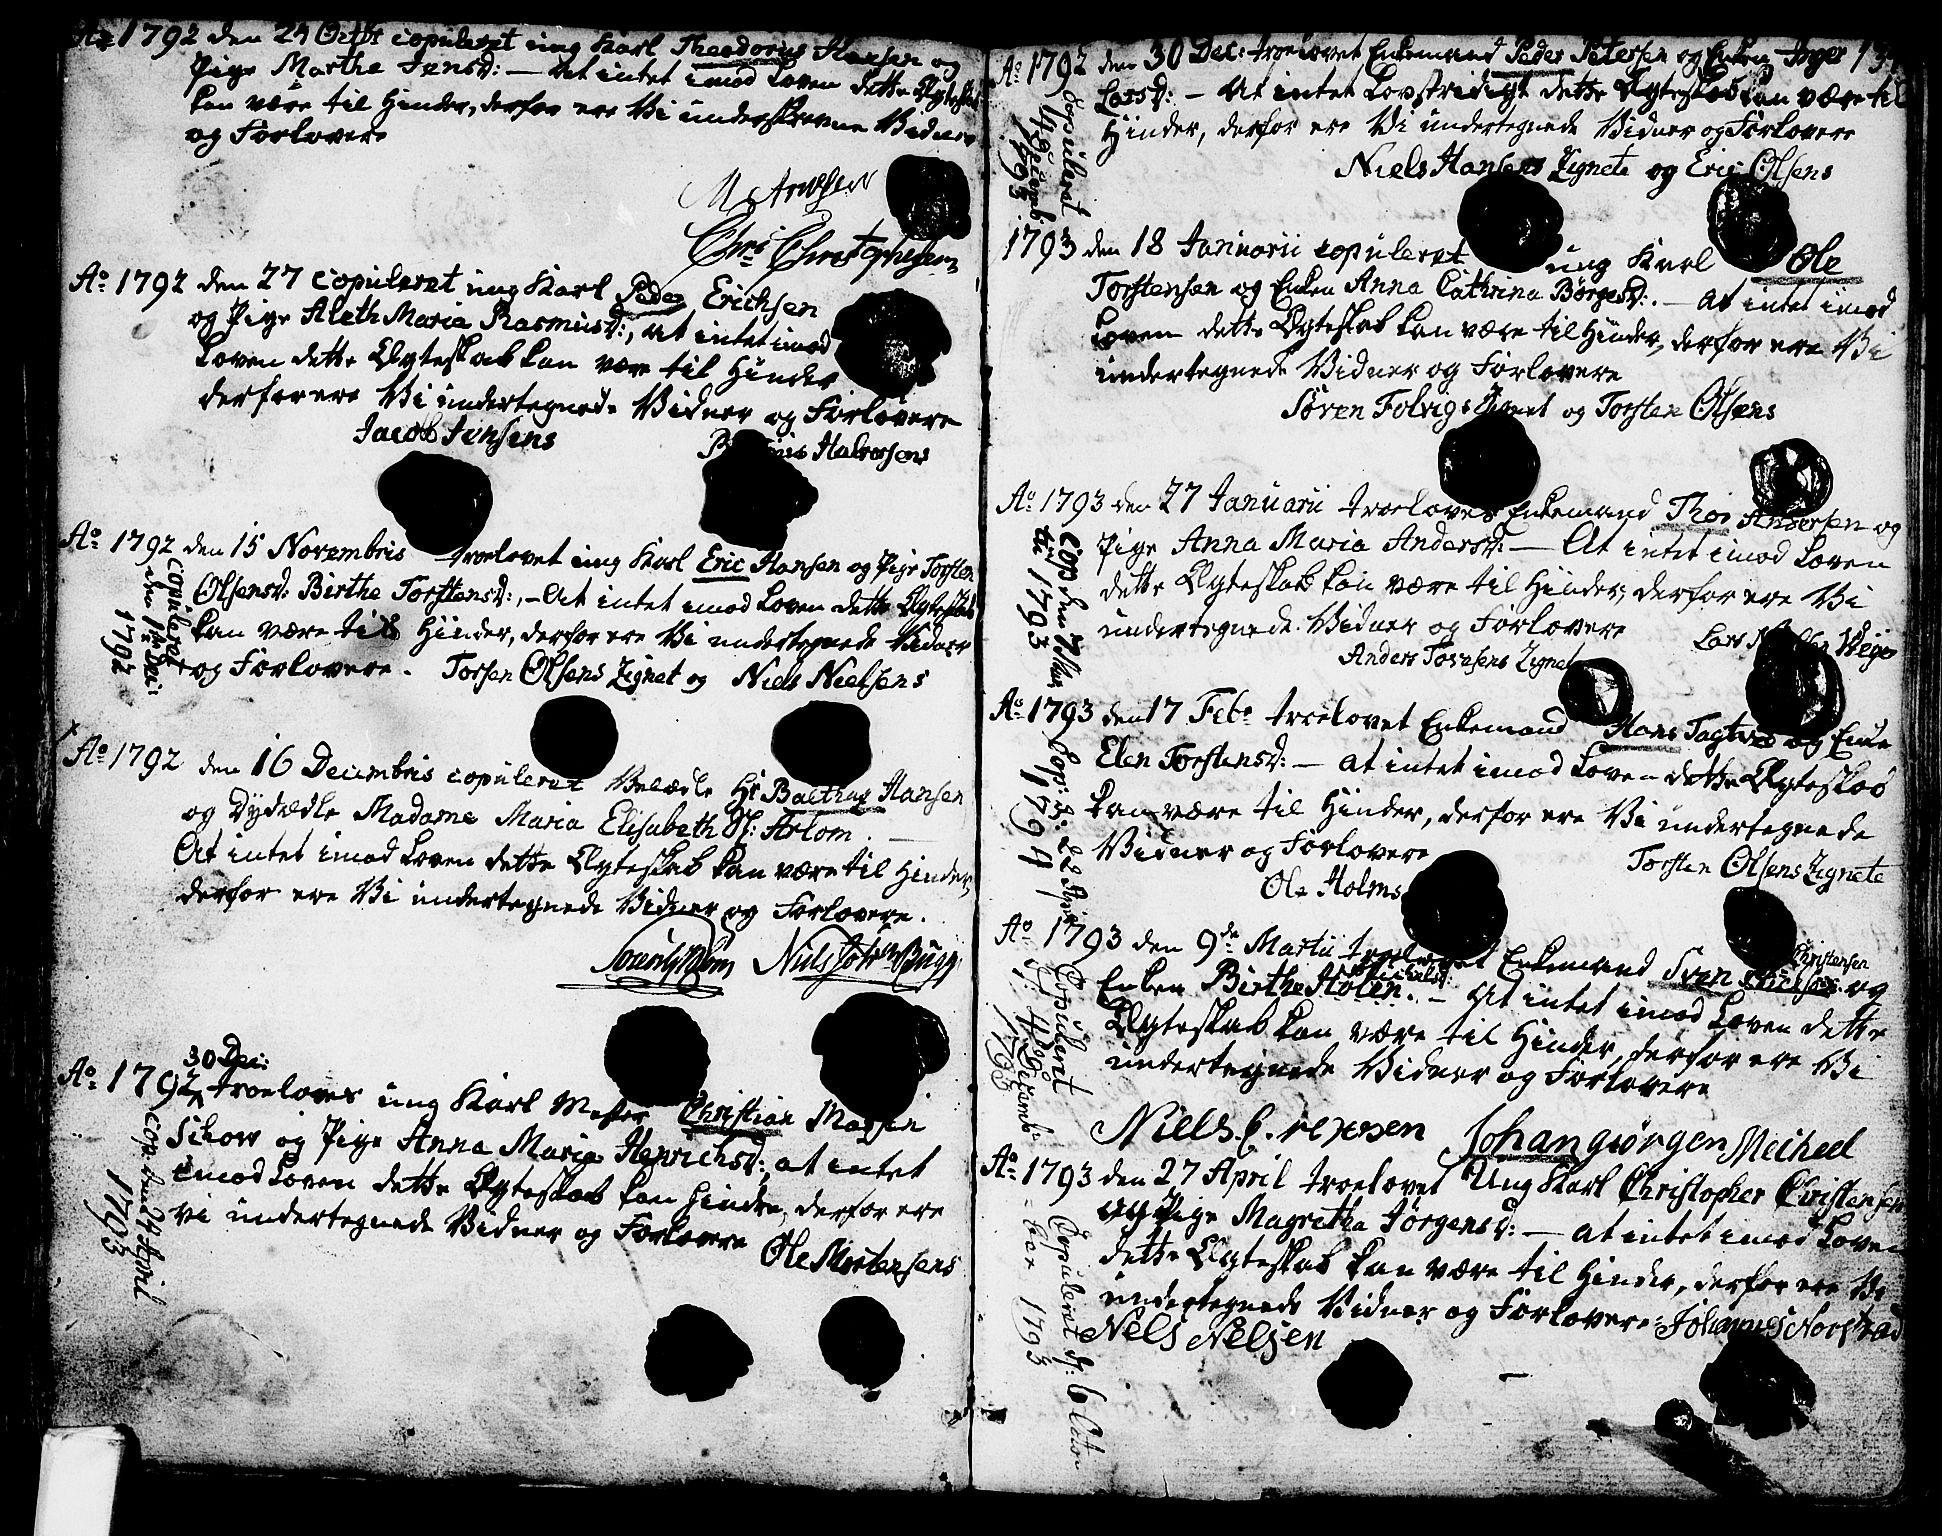 Ao 1792 den 24 Octbr copuleret ung Karl Theodorus Hansen og
Pige Marthe Jensd: — At intet imod Loven dette Ægteskab
kan være til Hinder, derfor ere Vi underskrevne Vidner
og Forlovere
Ao 1792 den 27 copuleret ung Karl Peder Erichsen
og Pige Aleth Maria Rasmusd:, at intet imod
Loven dette Ægteskab kan være til Hinder
derfor ere Vi undertegnede Vidner og Forlovere
Jacob Jensens Halvorsens
Ao 1792 den 15 Novembris troelovet ung Karl Eric Hansen og Pige Torsten
Olsensd: Birthe Torstensd:, – At intet imod Loven dette Ægteskab
kan være til Hinder, derfor ere Vi undertegnede Vidner
og Forlovere. Torsten Olsens Zignet og Niels Nielsens
copuleret
den 1te Dec:
1792
Ao 1792 den 16 Decembris copuleret Velædle Hr Balthaz Hansen
og Dydædle Madame Maria Elisabeth Arbom.
At intet imod Loven dette Ægteskab kan være til Hinder,
derfor ere Vi undertegnede Vidner og Forlovere.
30 Dec:
Ao 1792 troelovet ung Karl Mester Christian
Schow og Pige Anna Maria Henrichsd:, at intet
imod Loven dette Ægteskab kan hindre, derfor ere
Vi undertegnede Vidner og Forlovere
Ole Mortensens
Cop: den 24 April
1793
Ao 1792 den 30 Dec: troelovet Enkemand Peder Petersen og Enken Inger
Larsd: — At intet Lovstridigt dette Ægteskab kan være til
Hinder, derfor ere Vi undertegnede Vidner og Forlovere
Niels Hansens Zignete og Eric Olsens
Copuleret
1793
1793 den 18 Januarii copuleret ung Karl Ole
Torstensen og Enken Anna Cathrina Børgesd: — at intet imod
Loven dette Ægteskab kan være til Hinder, derfor ere Vi
undertegnede Vidner og Forlovere
Søren Folvigs Zignet og Torsten Olsens
Ao 1793 den 27 Januarii troelovet Enkemand Thor Andersen og
Pige Anna Maria Andersd: — At intet imod Loven
dette Ægteskab kan være til Hinder, derfor ere Vi
undertegnede Vidner og Forlovere
Anders Zignet
Cop den
1793
Ao 1793 den 17 Febr troelovet Enkemand Hans og Enke
Elen Torstensd: — at intet imod Loven dette Ægteskab
kan være til Hinder, derfor ere Vi undertegnede
Vidner og Forlovere
Ole Holms Torsten Olsens Zignete
Cop: d: 22 Apr:
1794
Ao 1793 den 9de Martii troelovet Enkemand Sven Christensen og
Enken Birthe Holen. – At intet imod Loven dette
Ægteskab kan være til Hinder, derfor ere Vi
undertegnede Vidner og Forlovere
Johan Giørgen Meiheel
Copuleret
1793
Ao 1793 den 27 April troelovet Ung Karl Christopher Christensen
og Pige Magretha Jørgensd: — at intet imod Loven
dette Ægteskab kan være til Hinder, derfor ere Vi
undertegnede Vidner og Forlovere: Johannes Norstrad
Nels Nelsen
Copuleret d: 6 Octo-
ber 1793